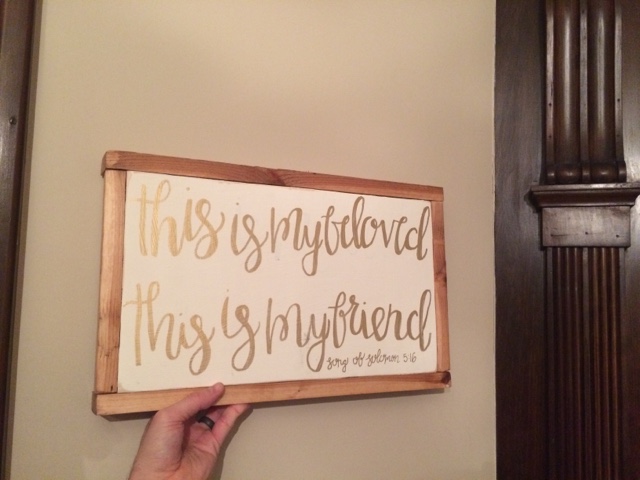 this is my beloved
this is my friend
song of solomon 5:16